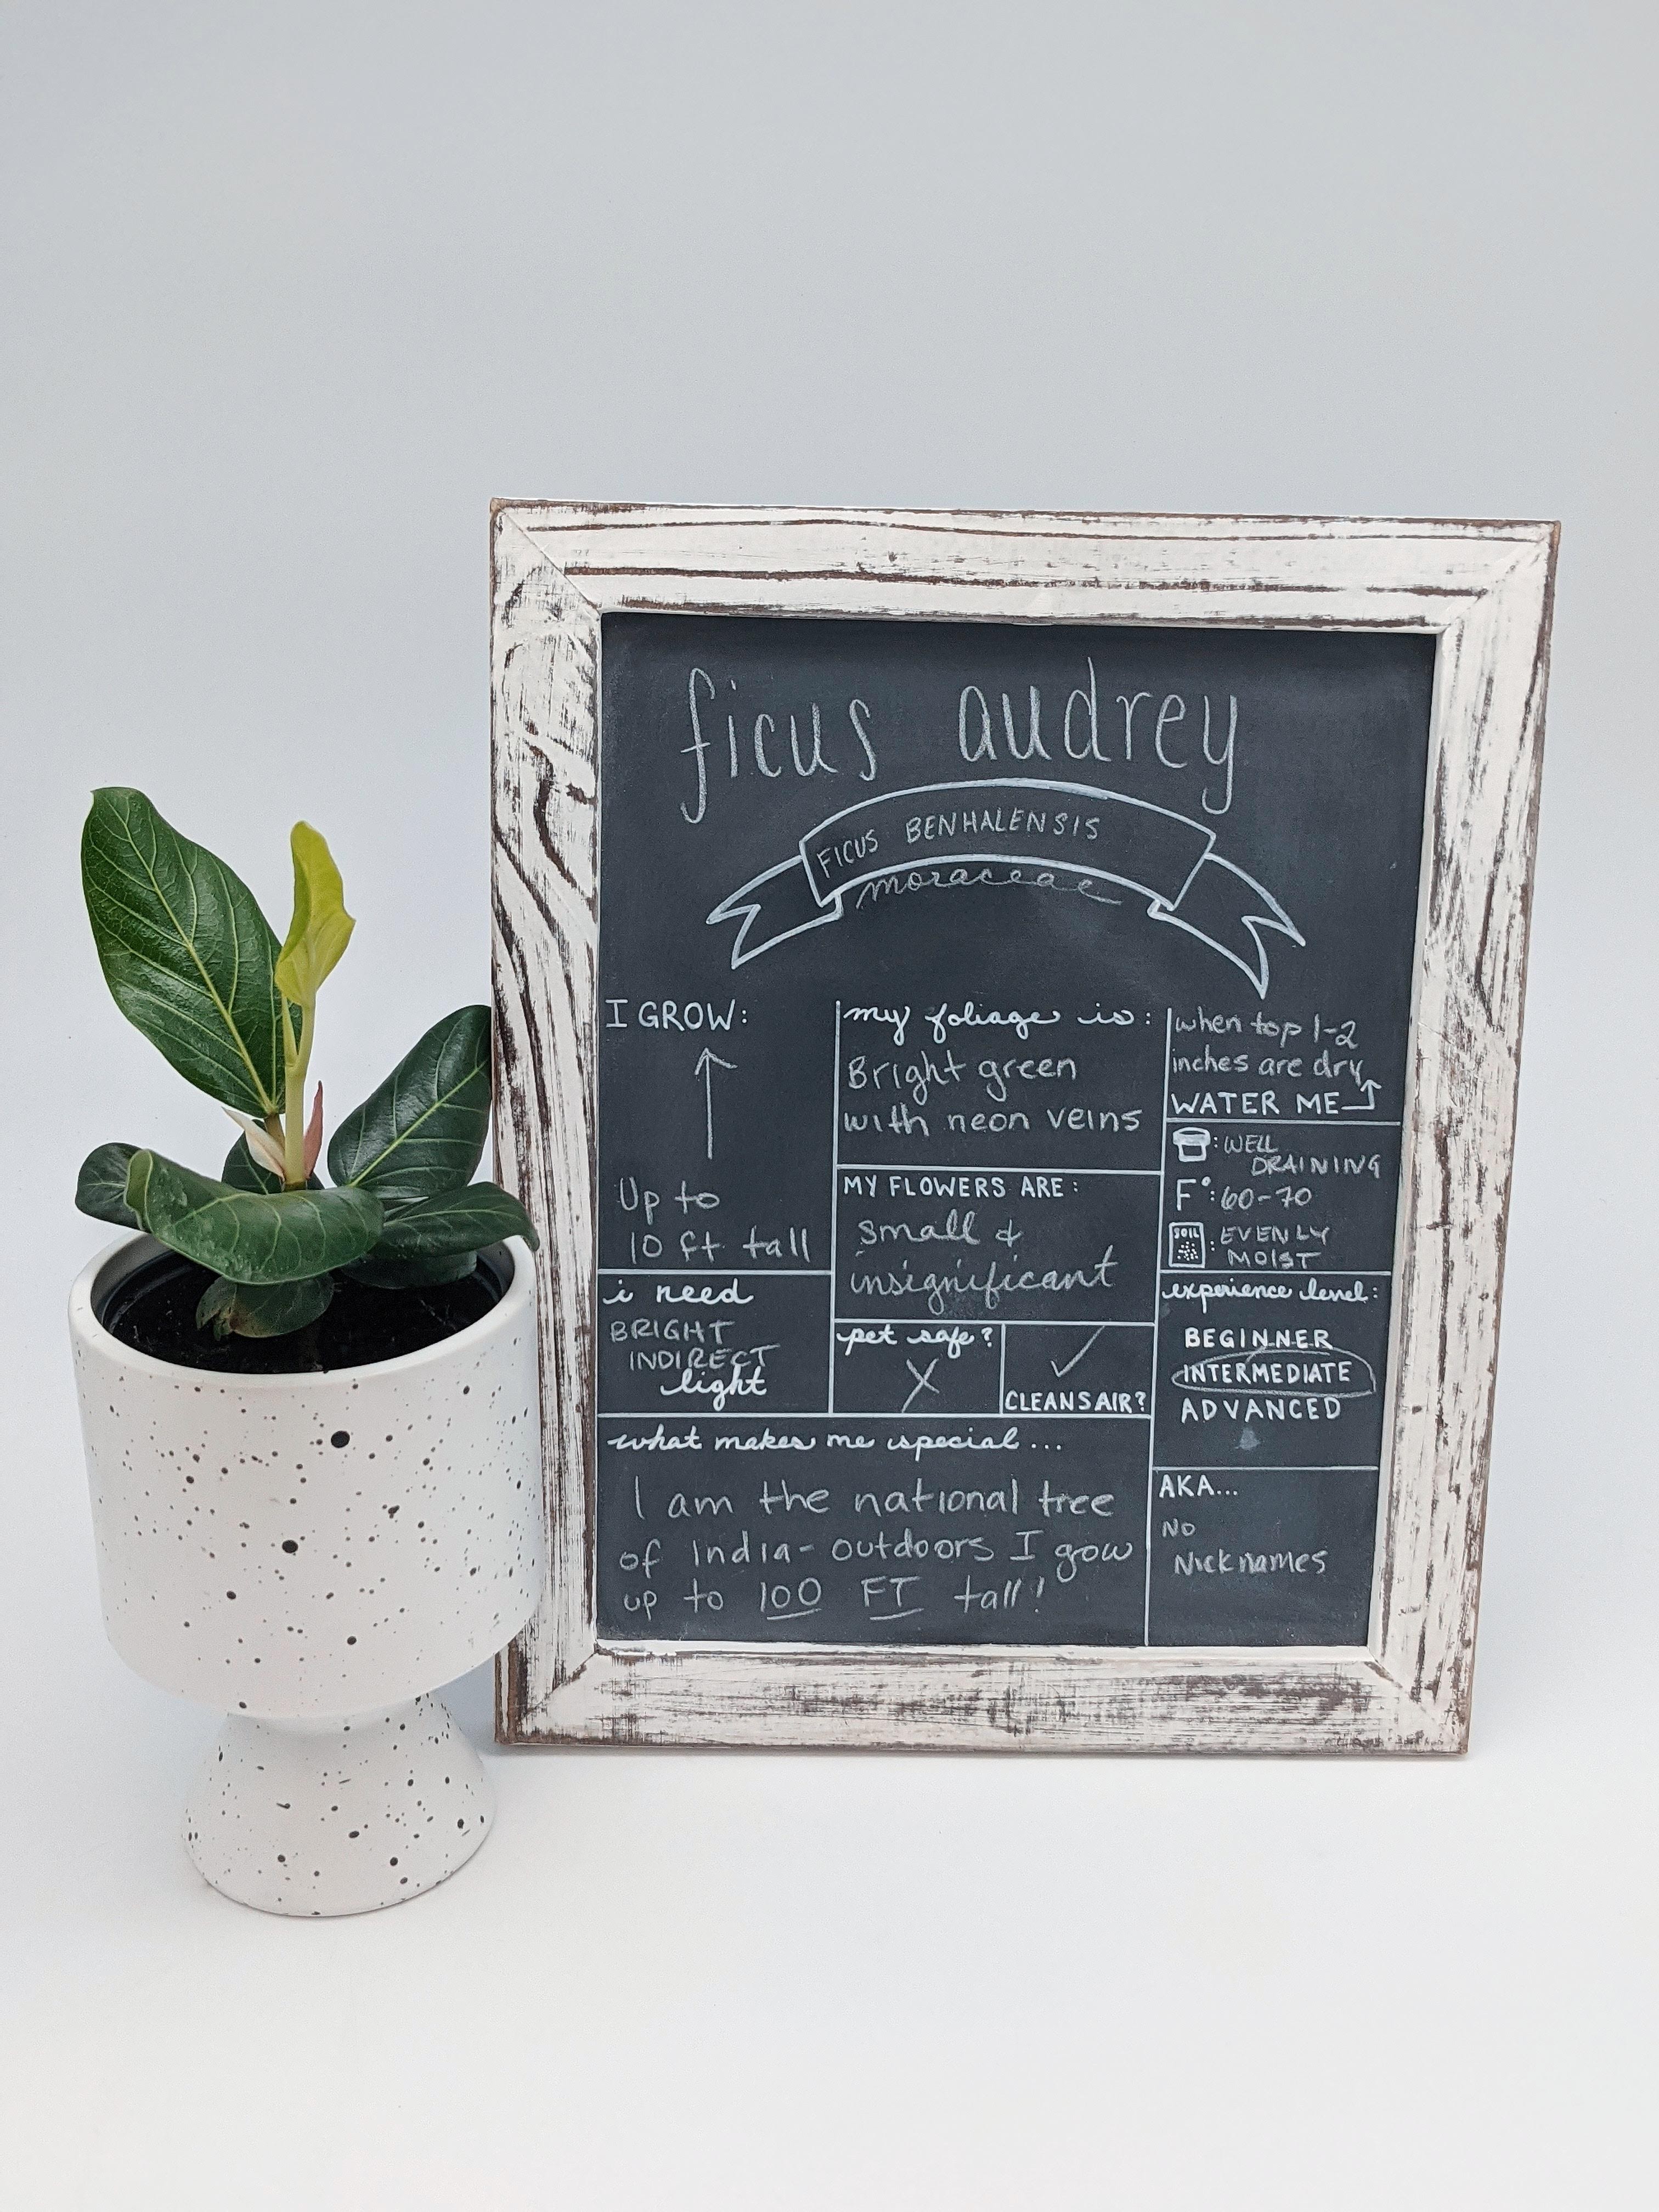 ficus audrey
FICUS BENHALENSIS
moraceae
I GROW:
Up to
10 ft tall
i need
BRIGHT
INDIRECT
light
my foliage is:
Bright green
with neon veins
MY FLOWERS ARE:
small &
insignificant
pet safe?
X
✓
CLEANS AIR?
when top 1-2
inches are dry
WATER ME
: WELL
DRAINING
F°: 60-70
SOIL : EVENLY
MOIST
experience level:
BEGINNER
INTERMEDIATE
ADVANCED
what makes me special...
I am the national tree
of India- outdoors I grow
up to 100 FT tall!
AKA...
NO
Nicknames